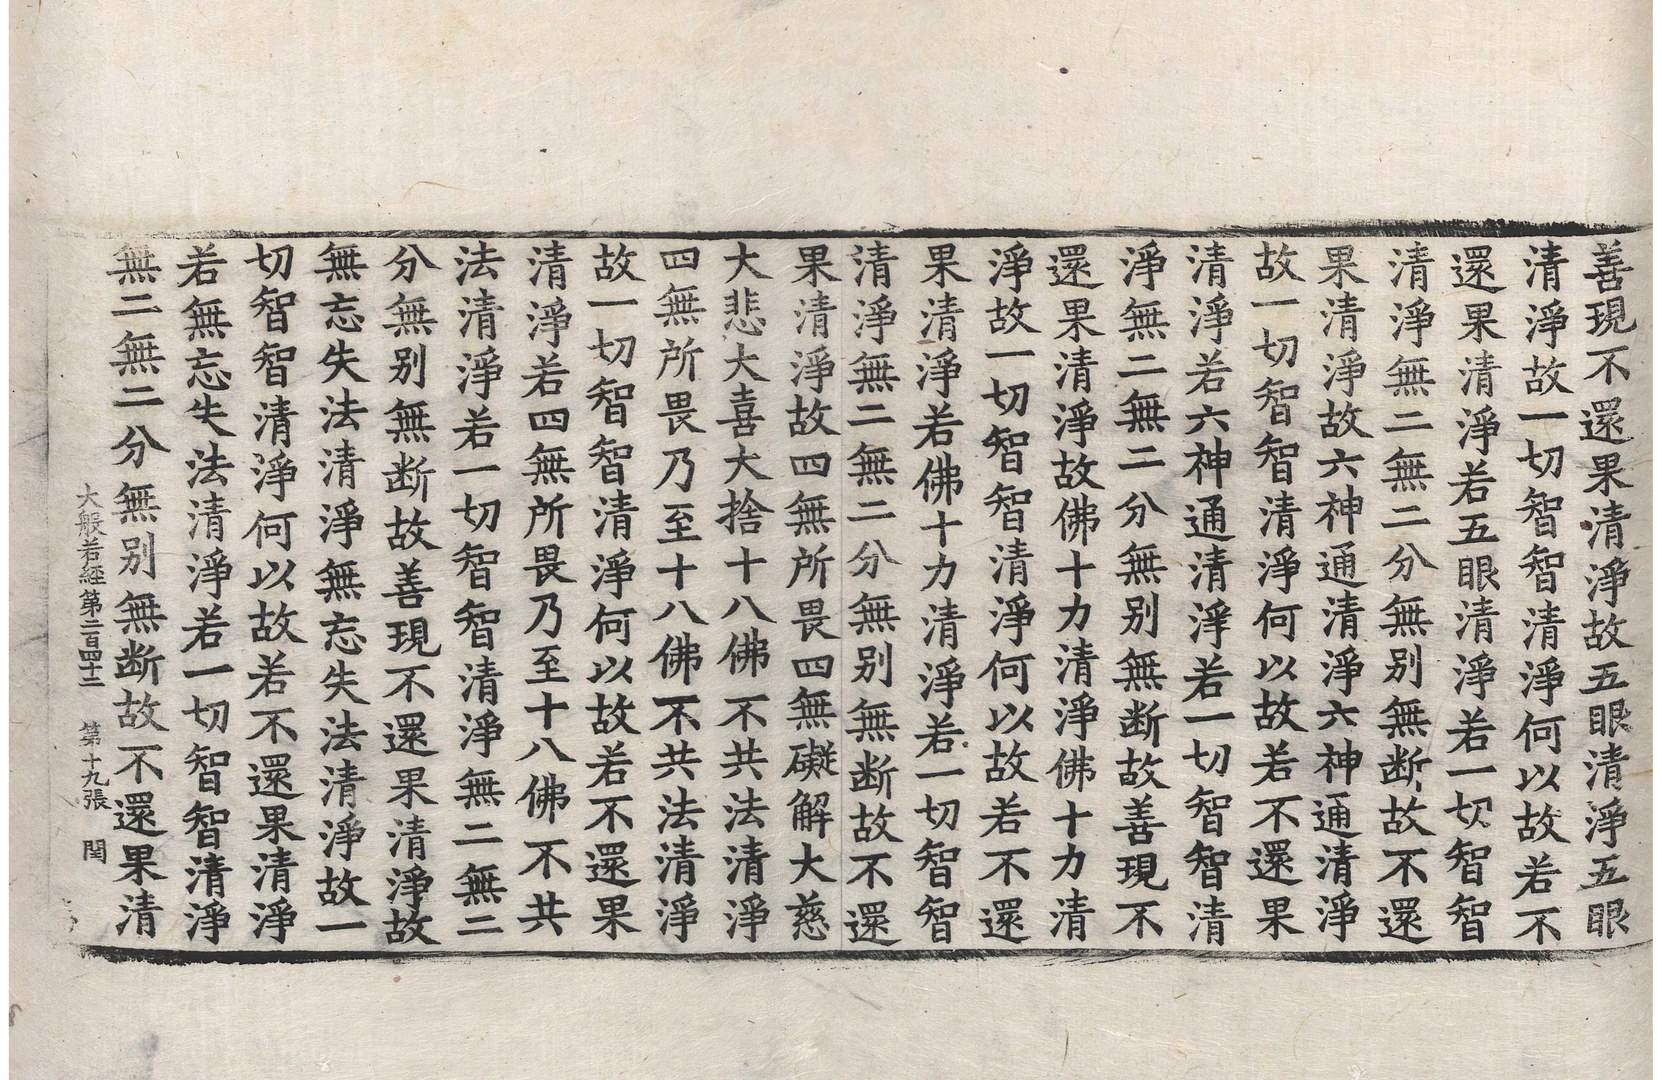 善現不還果清淨故五眼清淨五眼
清淨故一切智智清淨何以故若不
還果清淨若五眼清淨若一切智智
清淨無二無二分無别無断故不還
果清淨故六神通清淨六神通清淨
故一切智智清淨何以故若不還果
清淨若六神通清淨若一切智智清
淨無二無二分無别無断故善現不
還果清淨故佛十力清淨佛十力清
淨故一切智智清淨何以故若不還
果清淨若佛十力清淨若一切智智
清淨無二無二分無别無断故不還
果清淨故四無所畏四無礙解大慈
大悲大喜大捨十八佛不共法清淨
四無所畏乃至十八佛不共法清淨
故一切智智清淨何以故若不還果
清淨若四無所畏乃至十八佛不共
法清淨若一切智智清淨無二無二
分無别無断故善現不還果清淨故
無忘失法清淨無忘失法清淨故一
切智智清淨何以故若不還果清淨
若無忘失法清淨若一切智智清淨
無二無二分無别無断故不還果清
大般若經第二百四十二 第十九張 閏